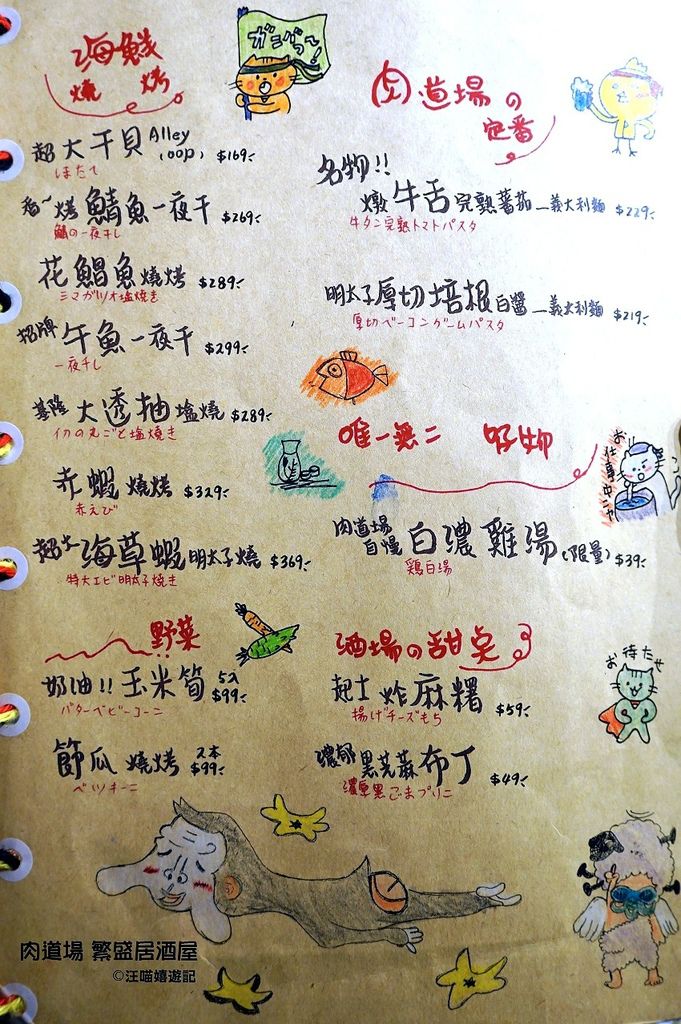 海鮮
燒烤
ガンバっ〜!
超大干貝 Alley
(oop) $169
ほたて
香~烤鯖魚一夜干 $269
鯖の一夜干し
花鯧魚燒烤 $289
シマガツオ塩焼き
招牌 午魚一夜干 $299
一夜干し
基隆 大透抽塩燒 $289
イカの丸ごと塩焼き
赤蝦燒烤 $329
赤えび
超大海草蝦明太子燒 $369
特大エビ明太子焼き
野菜
奶油!!玉米筍 5入 $99
バターベビーコーン
節瓜燒烤 2本 $99
ズッキーニ
肉道場の
定番
名物!!
燉牛舌完熟蕃茄_義大利麵 $229
牛タン完熟トマトパスタ
明太子厚切培根白醬_義大利麵 $219
厚切ベーコンクームパスタ
唯一無二 好物
お仕事中ニャ
肉道場
自慢 白濃雞湯(限量) $39
鶏白湯
酒場の甜点
お待たせ
起士炸麻糬 $59
揚げチーズもち
濃郁黑芝蔴布丁 $49
濃厚黒ごまプリン
肉道場 繁盛居酒屋
©汪喵嬉遊記